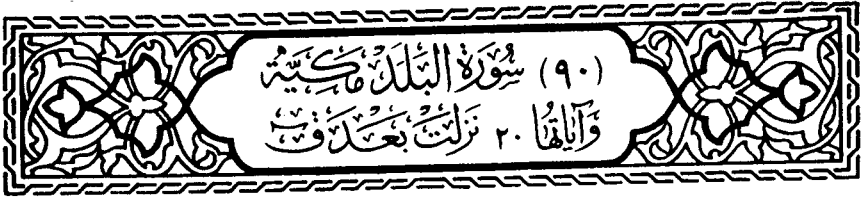 (٩٠) سُورَةُ البَلَدِ مَكِيَّةٌ
وَآيَاتُهَا ٢٠ نَزَلَتْ بَعْدَ قٓ